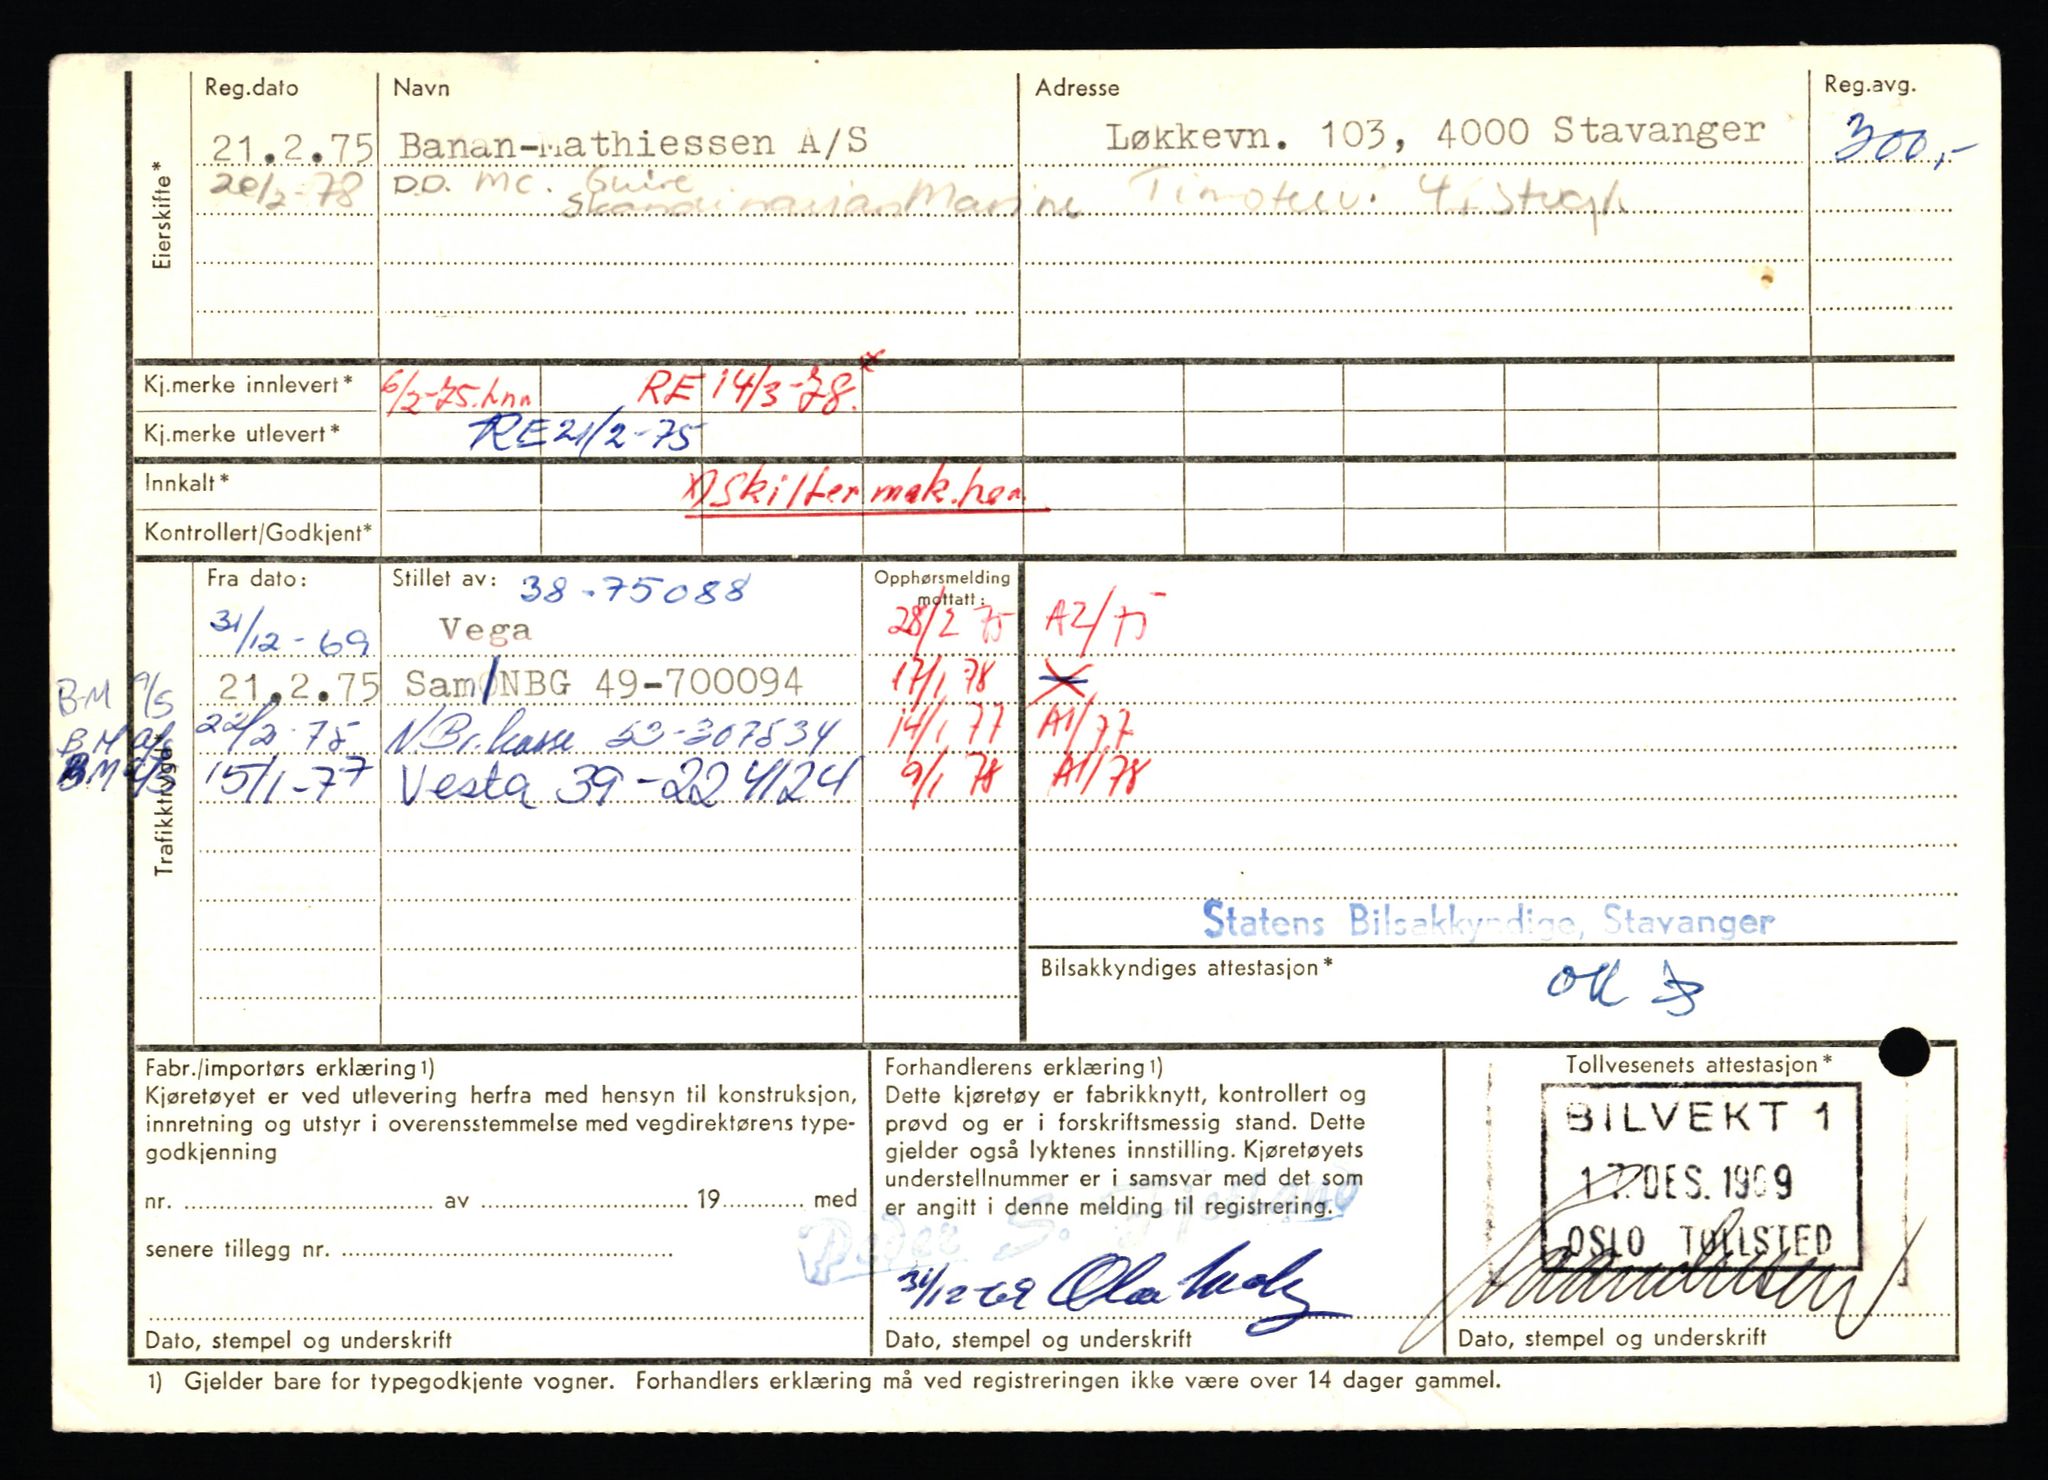 Reg.dato Navn Adresse Reg.avg.
Eierskifte*
21.2.75 Banan-Mathiessen A/S Løkkevn. 103, 4000 Stavanger 300,-
20/2-78 D.D. Mc. Guire
Skandinavian Marine
Kj.merke innlevert* 6/2-75. RE 14/3-78. x
Kj.merke utlevert* RE 21/2-75
Innkalt* x) Skilter mak.
Kontrollert/Godkjent*
Trafikktrygd*
Fra dato: Stillet av: 38-75088 Opphørsmelding mottatt:
31/12-69 Vega 28/2 75 A2/75
B.M. A/S 21.2.75 Sam/NBG 49-700094 17/1 78
B.M. A/S 22/2-75 N.Br.kasse 53-307534 14/1 77 A1/77
B.M. A/S 15/1-77 Vesta 39-224124 9/1 78 A1/78
Statens Bilsakkyndige, Stavanger
Bilsakkyndiges attestasjon* OK
Fabr./importørs erklæring 1)
Kjøretøyet er ved utlevering herfra med hensyn til konstruksjon,
innretning og utstyr i overensstemmelse med vegdirektørens type-
godkjenning
nr. av 19 med
senere tillegg nr.
Dato, stempel og underskrift
Forhandlerens erklæring 1)
Dette kjøretøy er fabrikknytt, kontrollert og
prøvd og er i forskriftsmessig stand. Dette
gjelder også lyktenes innstilling. Kjøretøyets
understellnummer er i samsvar med det som
er angitt i denne melding til registrering.
31/12-69
Dato, stempel og underskrift
Tollvesenets attestasjon*
BILVEKT 1
17. DES. 1969
OSLO TOLLSTED
Dato, stempel og underskrift
1) Gjelder bare for typegodkjente vogner. Forhandlers erklæring må ved registreringen ikke være over 14 dager gammel.